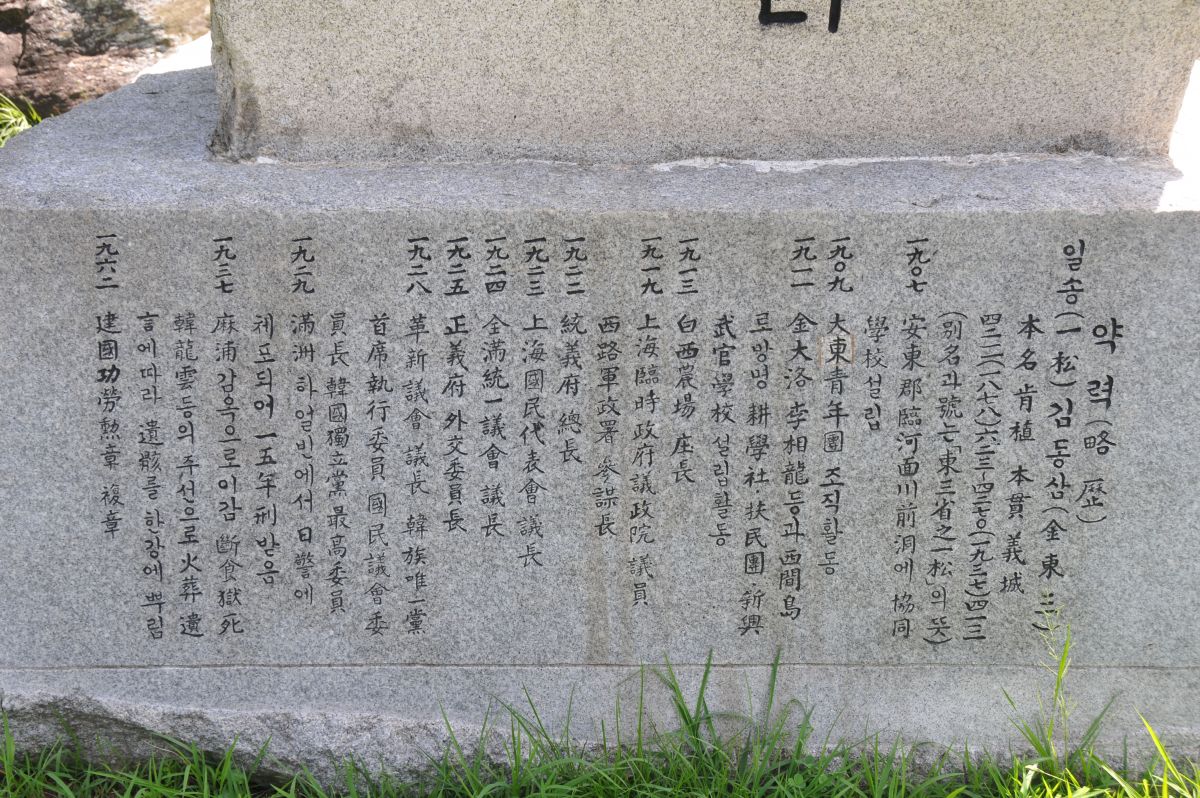 약력(略歷)
일송(一松)김동삼(金東三)
本名 肯植 本貫 義城
四二一一(一八七八)六·二三-四二七○(一九三七)四·一三
(別名과號는「東三省之一松」의뜻)
一九○七 安東郡臨河面川前洞에協同
學校설립
一九○九 大東靑年團 조직활동
一九一一 金大洛 李相龍등과西間島
로망명 耕學社·扶民團·新興
武官學校설립활동
一九一三 白西農場 座長
一九一九 上海臨時政府議政院 議員
西路軍政署 參謀長
一九二二 統義府 總長
一九二三 上海國民代表會議長
一九二四 全滿統一議會 議長
一九二五 正義府 外交委員長
一九二八 革新議會 議長 韓族唯一黨
首席執行委員 國民議會委
員長 韓國獨立黨最高委員
一九二九 滿洲하얼빈에서日警에
체포되어 一五年刑받음
一九三七 麻浦감옥으로이감 斷食獄死
韓龍雲등의주선으로火葬遺
言에따라 遺骸를한강에뿌림
一九六二 建國功勞勳章 複章